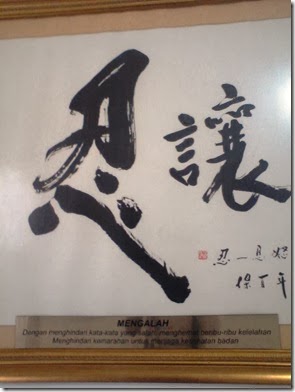 忍讓
忍一息怒
保百年
MENGALAH
Dengan menghindari kata-kata yang salah, menghemat beribu-ribu kelelahan
Menghindari kemarahan untuk menjaga kesehatan badan